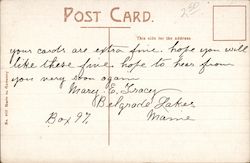 250
POST CARD.
This side for the address.
your cards are extra fine. hope you will
like these five. hope to hear from
you very soon again
Mary E. Tracy
Belgrade Lakes
Box 97. Maine